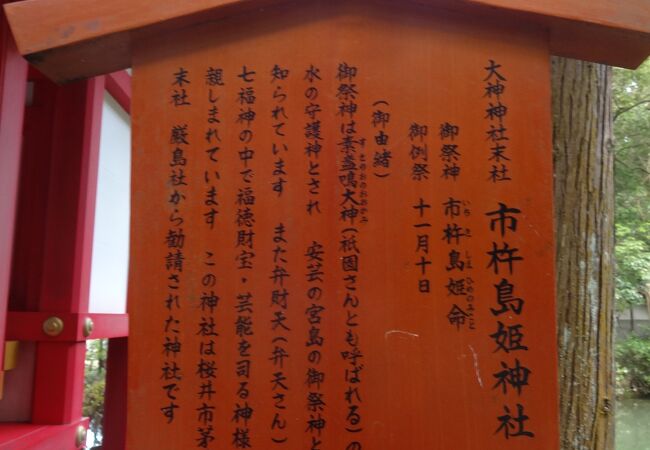 大神神社末社 市杵島姫神社
いちきしまひめのみこと
御祭神 市杵島姫命
御例祭 十一月十日
(御由緒)
すさのおのおおかみ
御祭神は素盞嗚大神(祇園さんとも呼ばれる)の
水の守護神とされ 安芸の宮島の御祭神と
知られています また弁財天(弁天さん)
七福神の中で福徳財宝・芸能を司る神様
親しまれています この神社は桜井市茅
末社 厳島社から勧請された神社です